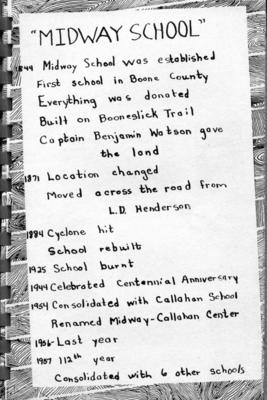 "MIDWAY SCHOOL"
1844 Midway School was established
First school in Boone County
Everything was donated
Built on Booneslick Trail
Captain Benjamin Watson gave
the land
1871 Location changed
Moved across the road from
L.D. Henderson
1884 Cyclone hit
School rebuilt
1925 School burnt
1944 Celebrated Centennial Anniversary
1954 Consolidated with Callahan School
Renamed Midway-Callahan Center
1956- Last year
1957 112th year
Consolidated with 6 other schools